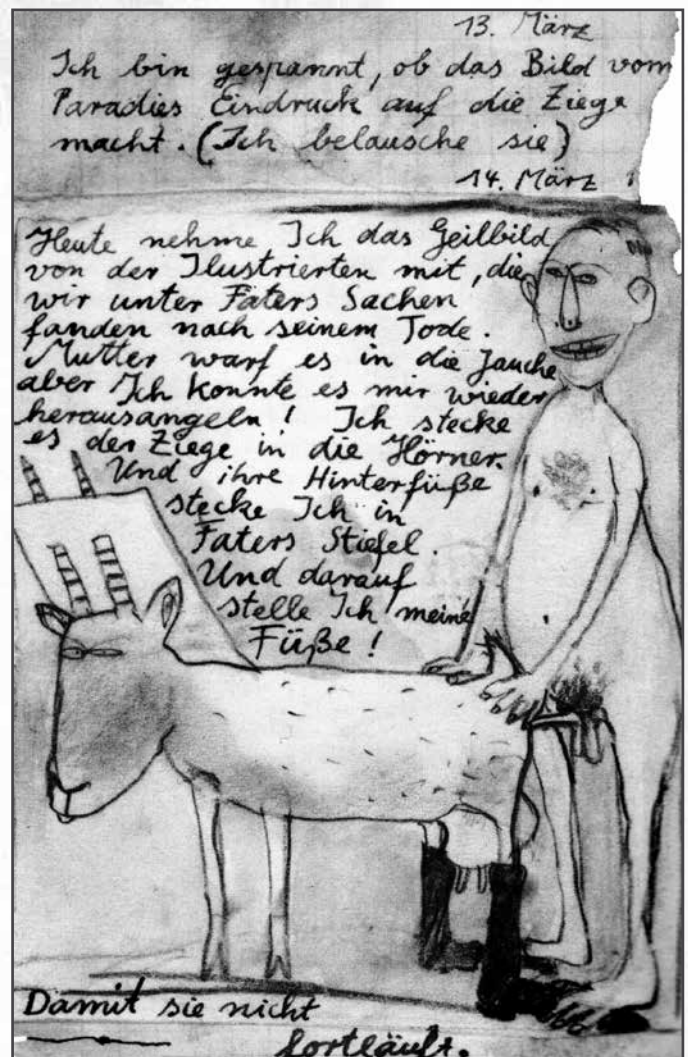 13. März
Ich bin gespannt, ob das Bild vom
Paradies Eindruck auf die Ziege
macht. (Ich belausche sie)
14. März
Heute nehme Ich das Geilbild
von der Ilustrierten mit, die
wir unter Faters Sachen
fanden nach seinem Tode.
Mutter warf es in die Jauche
aber Ich konnte es mir wieder
herausangeln! Ich stecke
es der Ziege in die Hörner.
Und ihre Hinterfüße
stecke Ich in
Faters Stiefel.
Und darauf
stelle Ich meine
Füße!
Damit sie nicht
fortläuft.